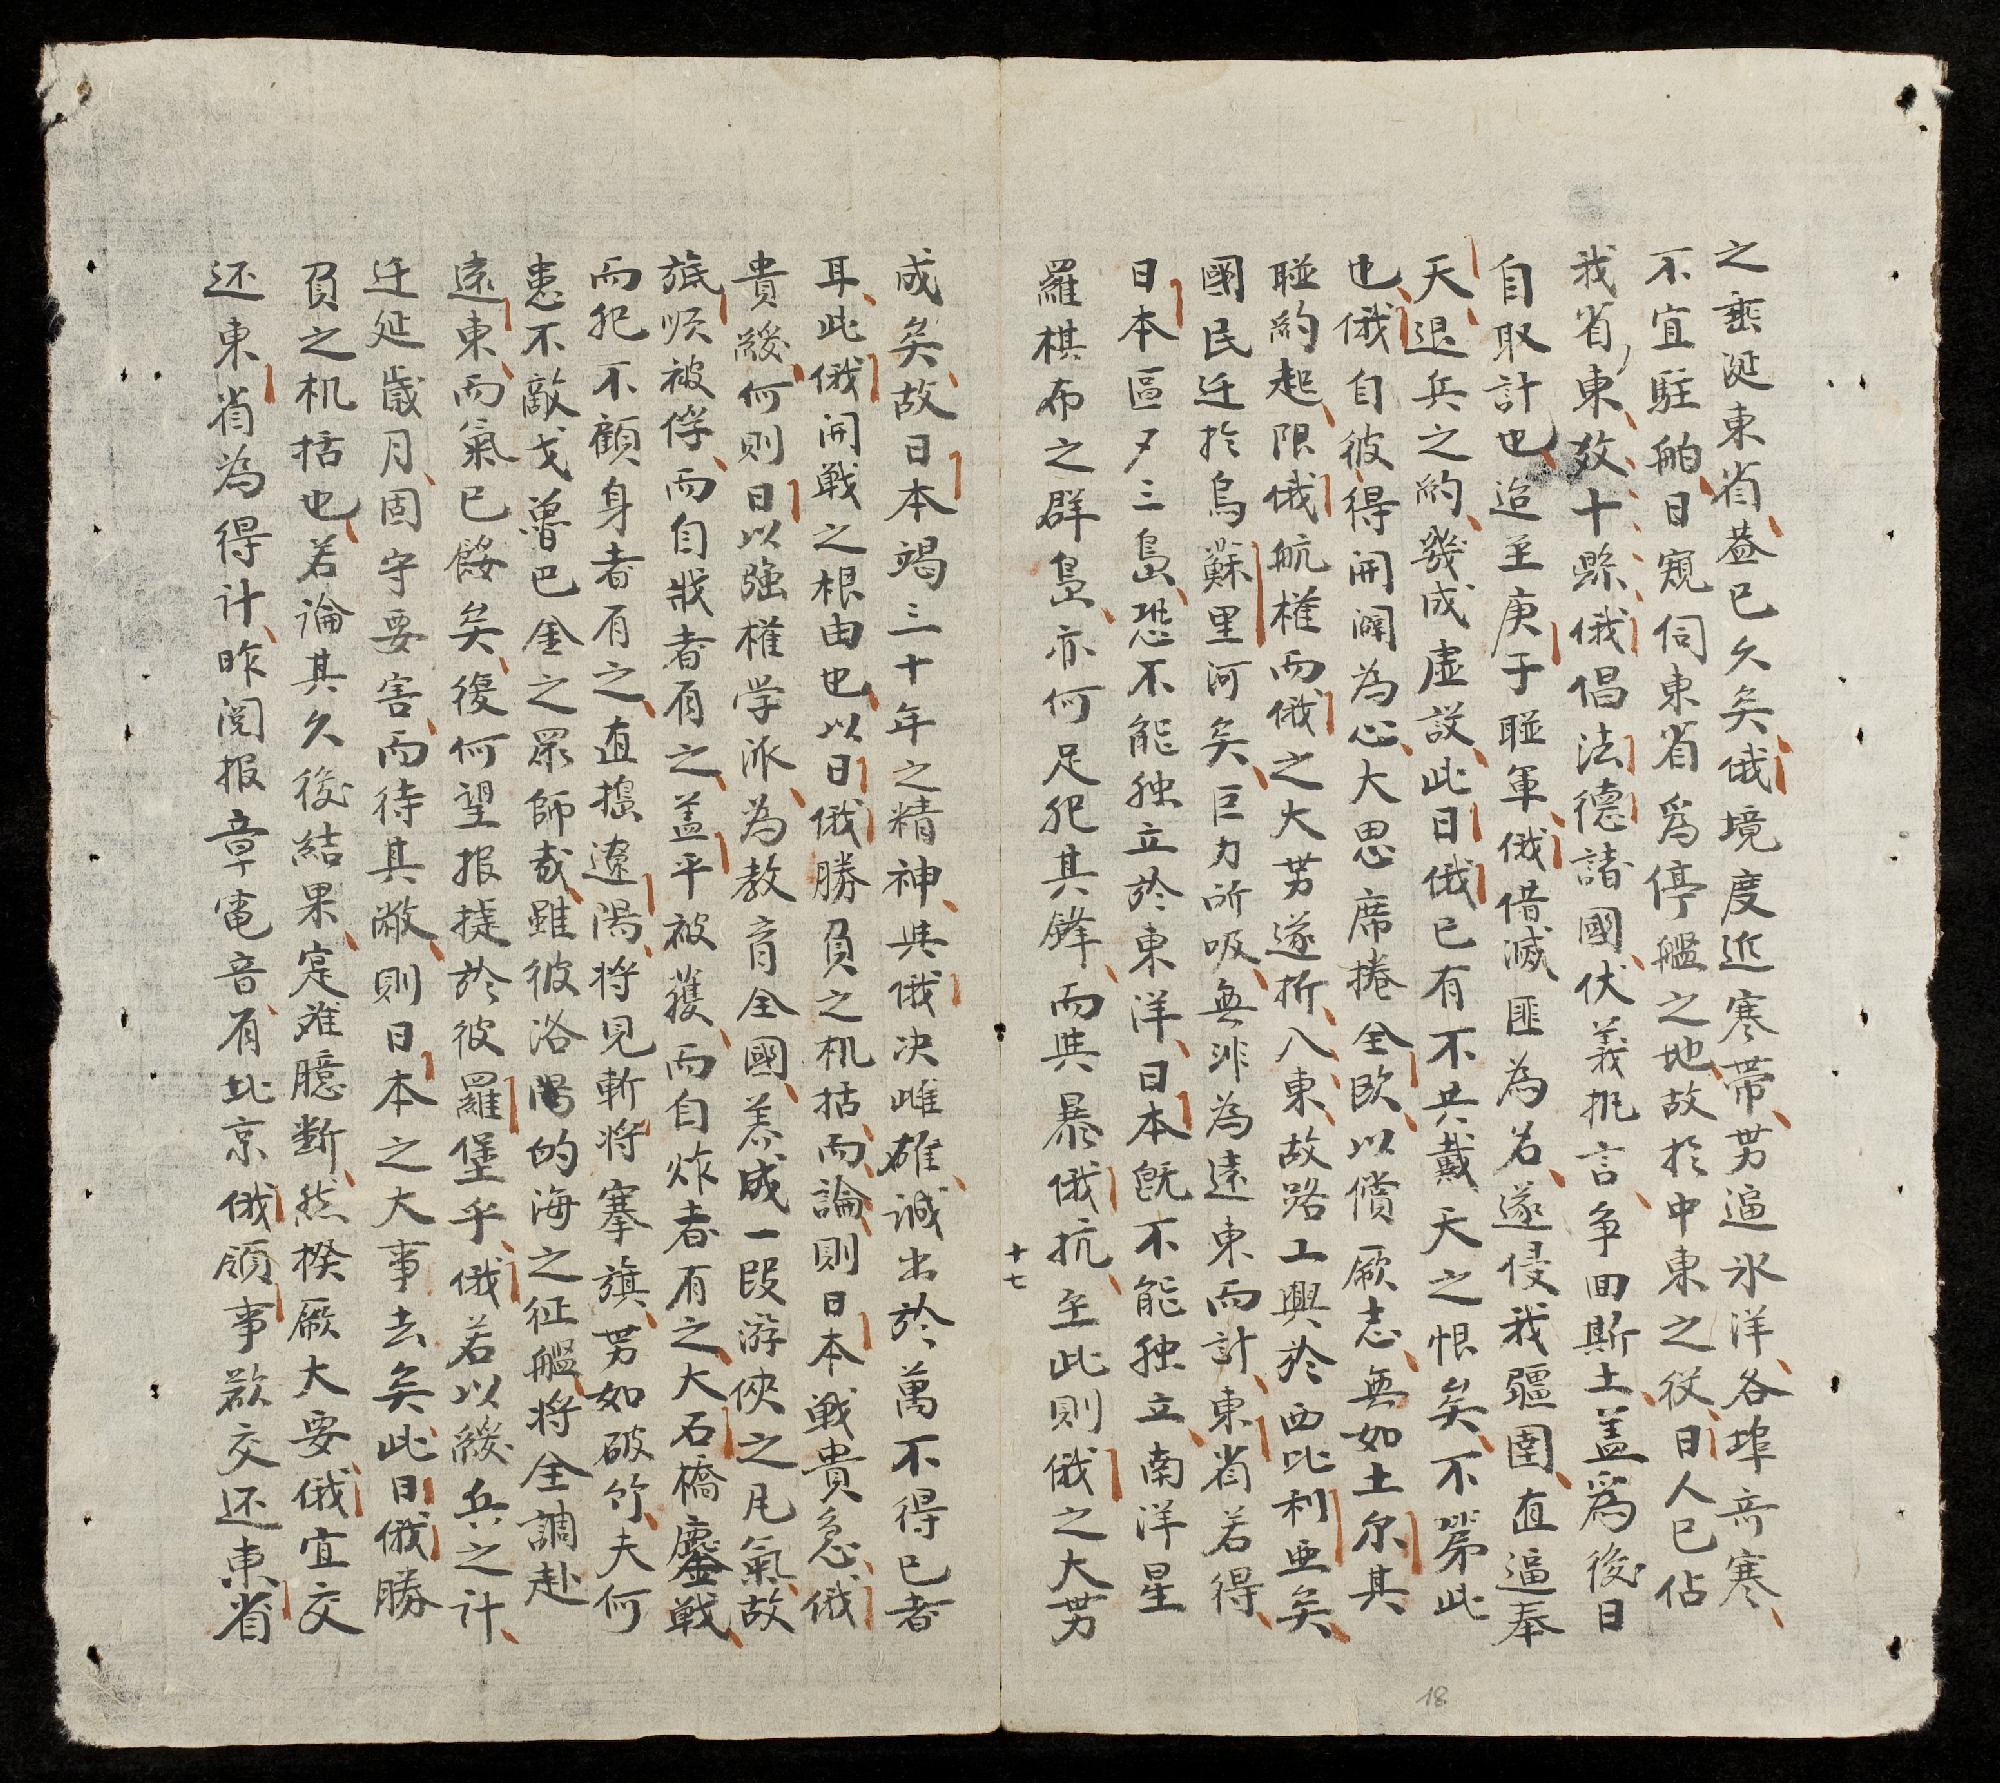 之垂涎東省、盖已久矣俄境度近寒帶、势逼氷洋、各埠奇寒、
不宜駐舶、日窺伺東省為停艦之地、故扵中東之役日人已佔
我省東、数十縣、俄倡法德諸國、伏義抗言、争回斯土、盖為後日
自取計也、迨至庚子聮軍、俄借滅匪為名、遂侵我疆圉、直逼奉
天、退兵之約、幾成虛設、此日俄已有不共戴天之恨矣、不第此
也、俄自彼得開闢為心、大思席捲全欧、以償厥志、無如土尔其
聮約起、限俄航權、而俄之大势遂折入東、故路工興於西比利亜矣
國民迁扵烏蘇里河矣、巨力所吸、無非為遠東而計、東省若得、
日本區夕三島、恐不能独立於東洋、日本既不能独立、南洋星
羅棋布之群島、亦何足犯其鋒、而與暴俄抗、至此則俄之大势
十七
成矣、故日本竭三十年之精神、與俄决雌雄、誠出於萬不得已者
耳、此俄開戰之根由也、以日俄勝負之机括而論、則日本戰貴急、俄
貴緩、何則、日以强權学派、為教育全國、养成一段游俠之凡氣、故
旅順被俘、而自戕者有之、盖平被獲、而自炸者有之、大石橋鏖戰、
而死不顧身者有之、直搗遼陽、將見斬將搴旗、势如破竹、夫何
患不敵戈魯巴金之眾師哉、雖彼洛陽的海之征艦、將全調赴
遠東、而氣已餒矣、復何望报捷於彼羅堡乎、俄若以緩兵之計、
迁延歲月、固守要害、而待其敝、則日本之大事去矣、此日俄勝
負之机括也、若論其久後結果、寔难臆断、然揆厥大要、俄宜交
还東省為得計、昨閱报章電音、有北京俄領事欲交还東省
18